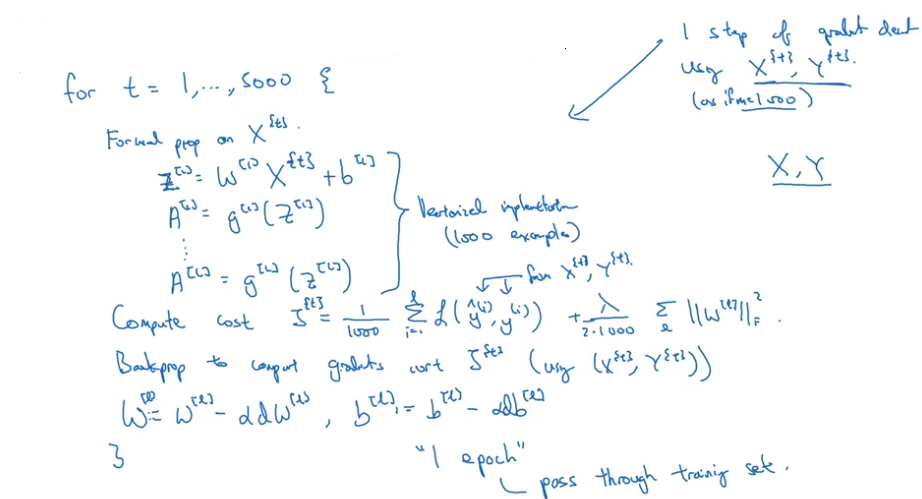 1 step of gradient descent
using X^{t}, Y^{t}.
(as if m=1000)
for t = 1,..., 5000 {
Forward prop on X^{t}.
Z^[1] = W^[1] X^{t} + b^[1]
A^[1] = g^[1](Z^[1])
⋮
A^[L] = g^[L](Z^[L])
Vectorized implementation
(1000 examples)
X, Y
from X^{t}, Y^{t}.
Compute cost J^{t} = 1/1000 Σ_{i=1}^{l} L(ŷ^(i), y^(i)) + λ/(2·1000) Σ_l ||W^[l]||_F^2.
Backprop to compute gradients wrt J^{t} (using (X^{t}, Y^{t}))
W^[l] := W^[l] - αdW^[l], b^[l] := b^[l] - αdb^[l]
}
"1 epoch"
pass through training set.